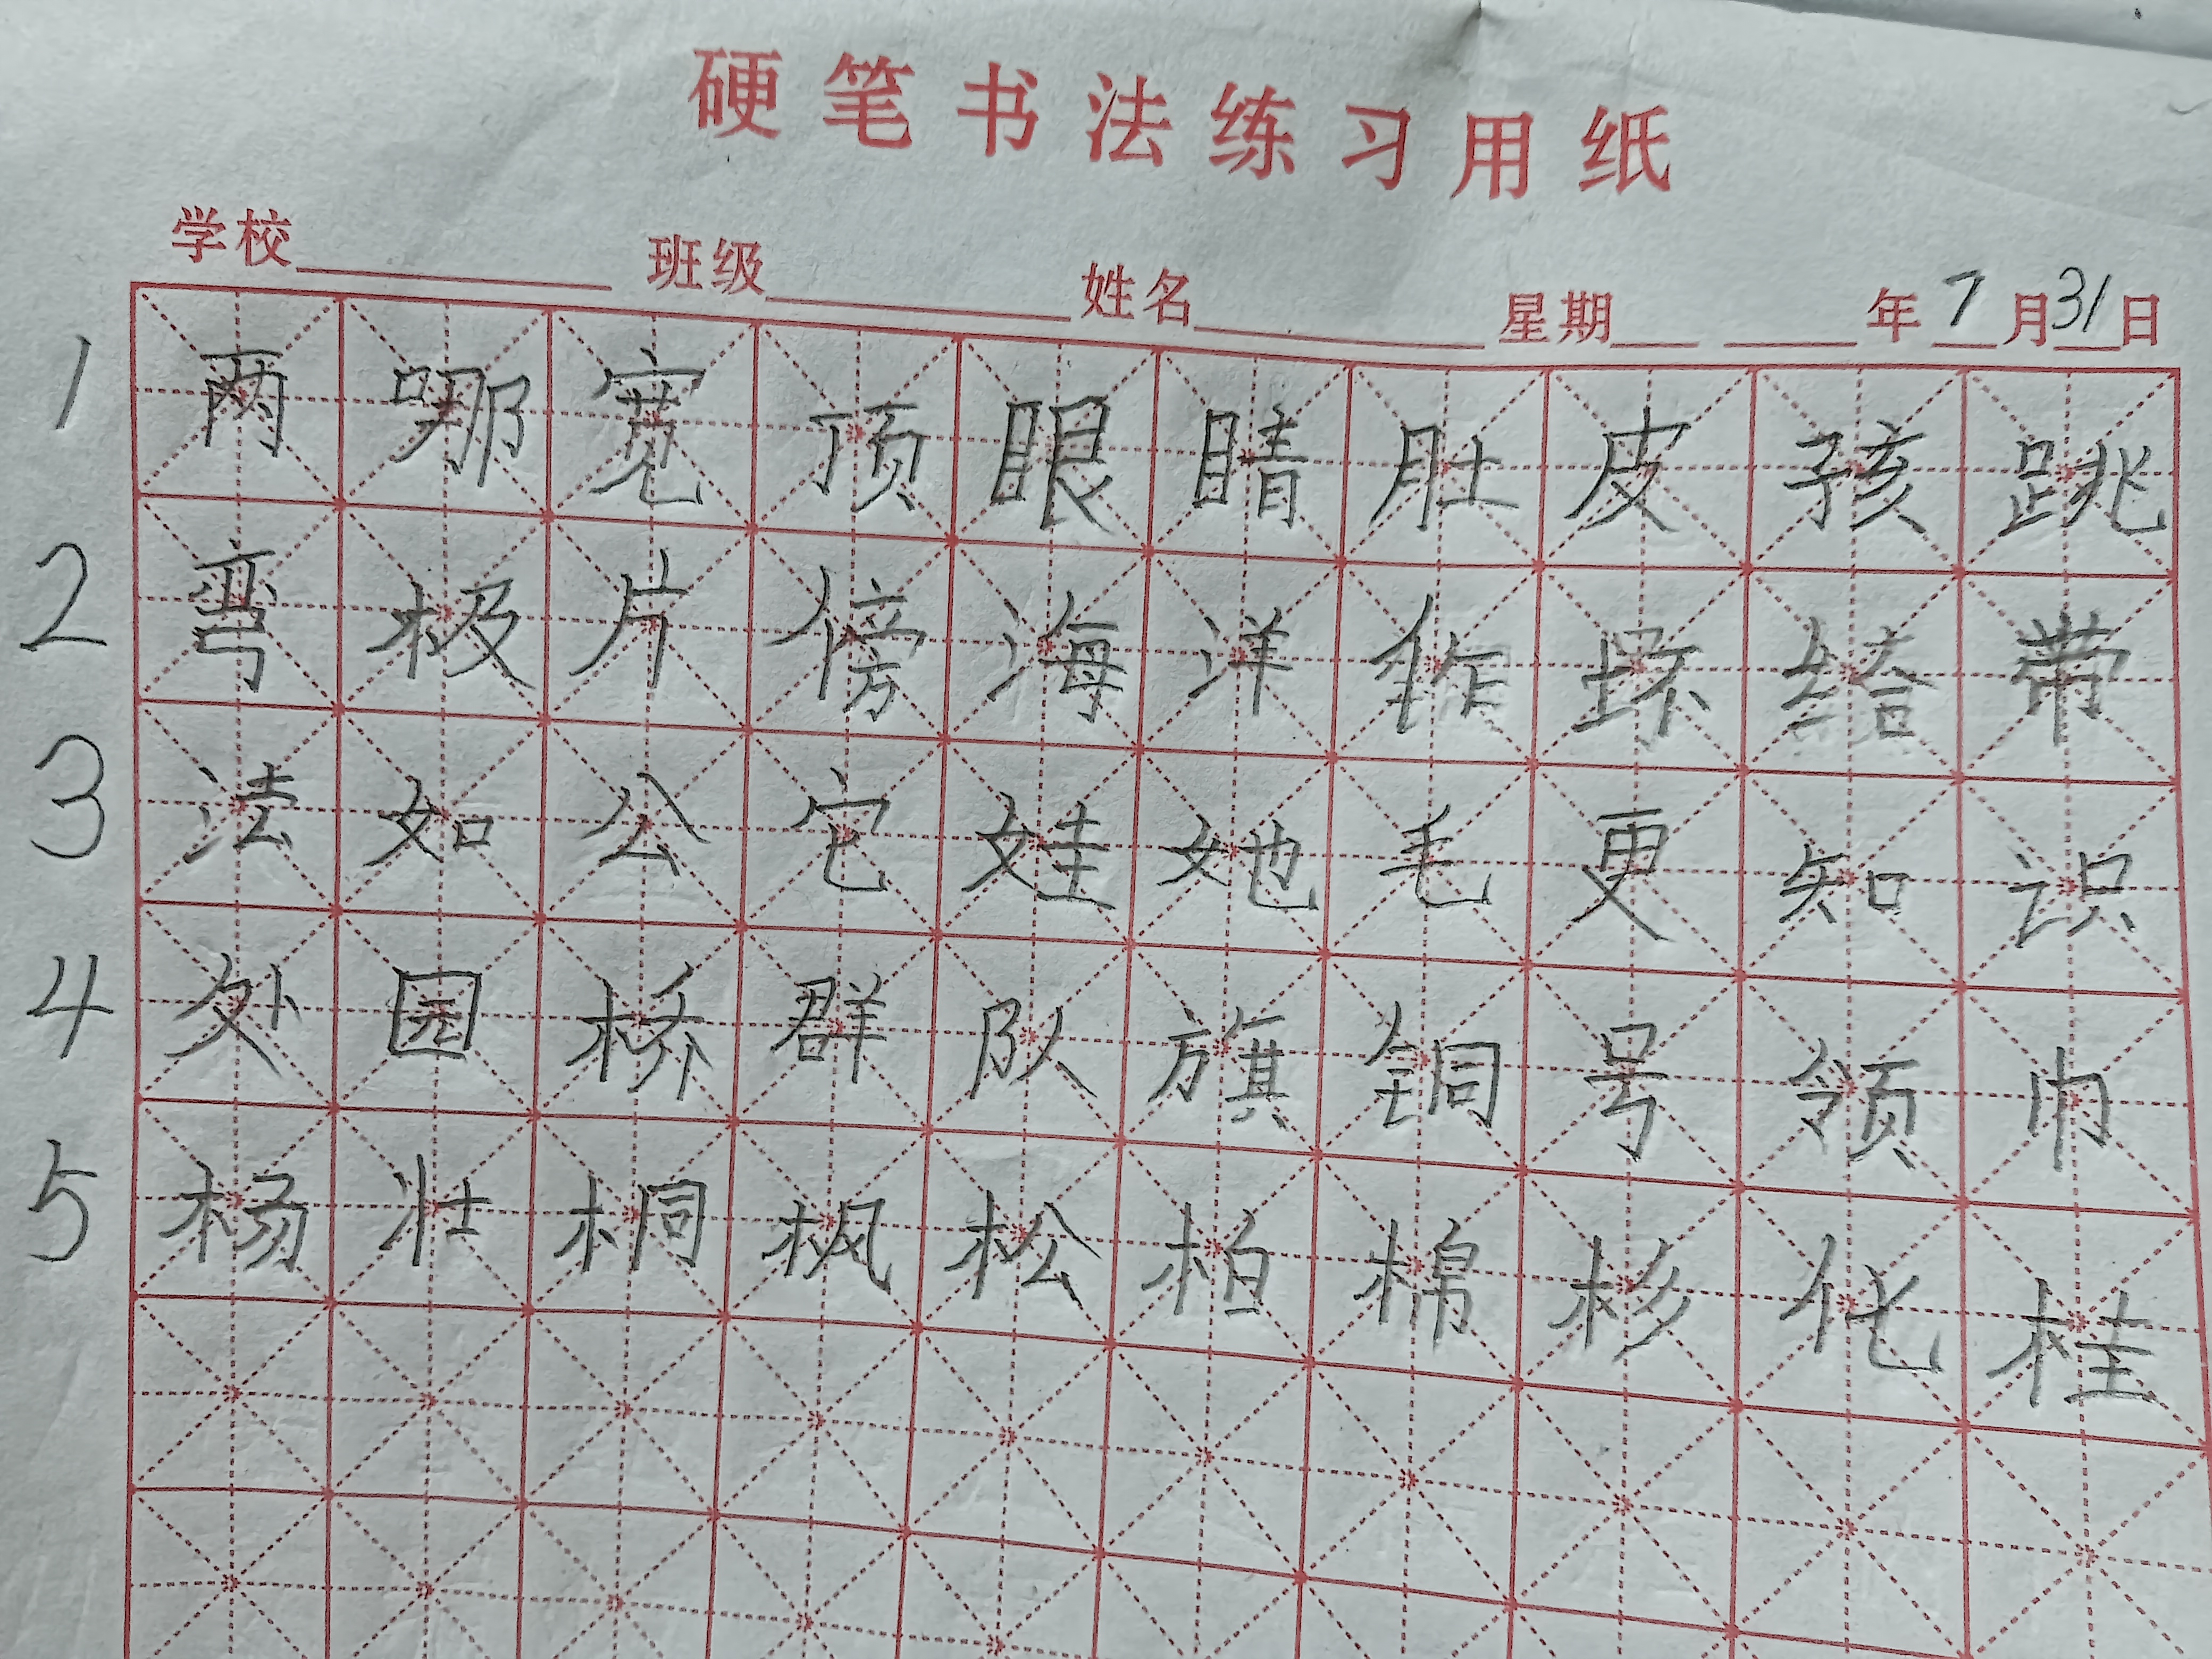 硬笔书法练习用纸
学校 班级 姓名 星期 年7月31日
1 两 哪 宽 顶 眼 睛 肚 皮 孩 跳
2 弯 极 片 傍 海 洋 作 坏 给 带
3 法 如 公 它 娃 她 毛 更 知 识
4 处 园 桥 群 队 旗 铜 号 领 巾
5 杨 壮 桐 枫 松 柏 棉 杉 化 桂